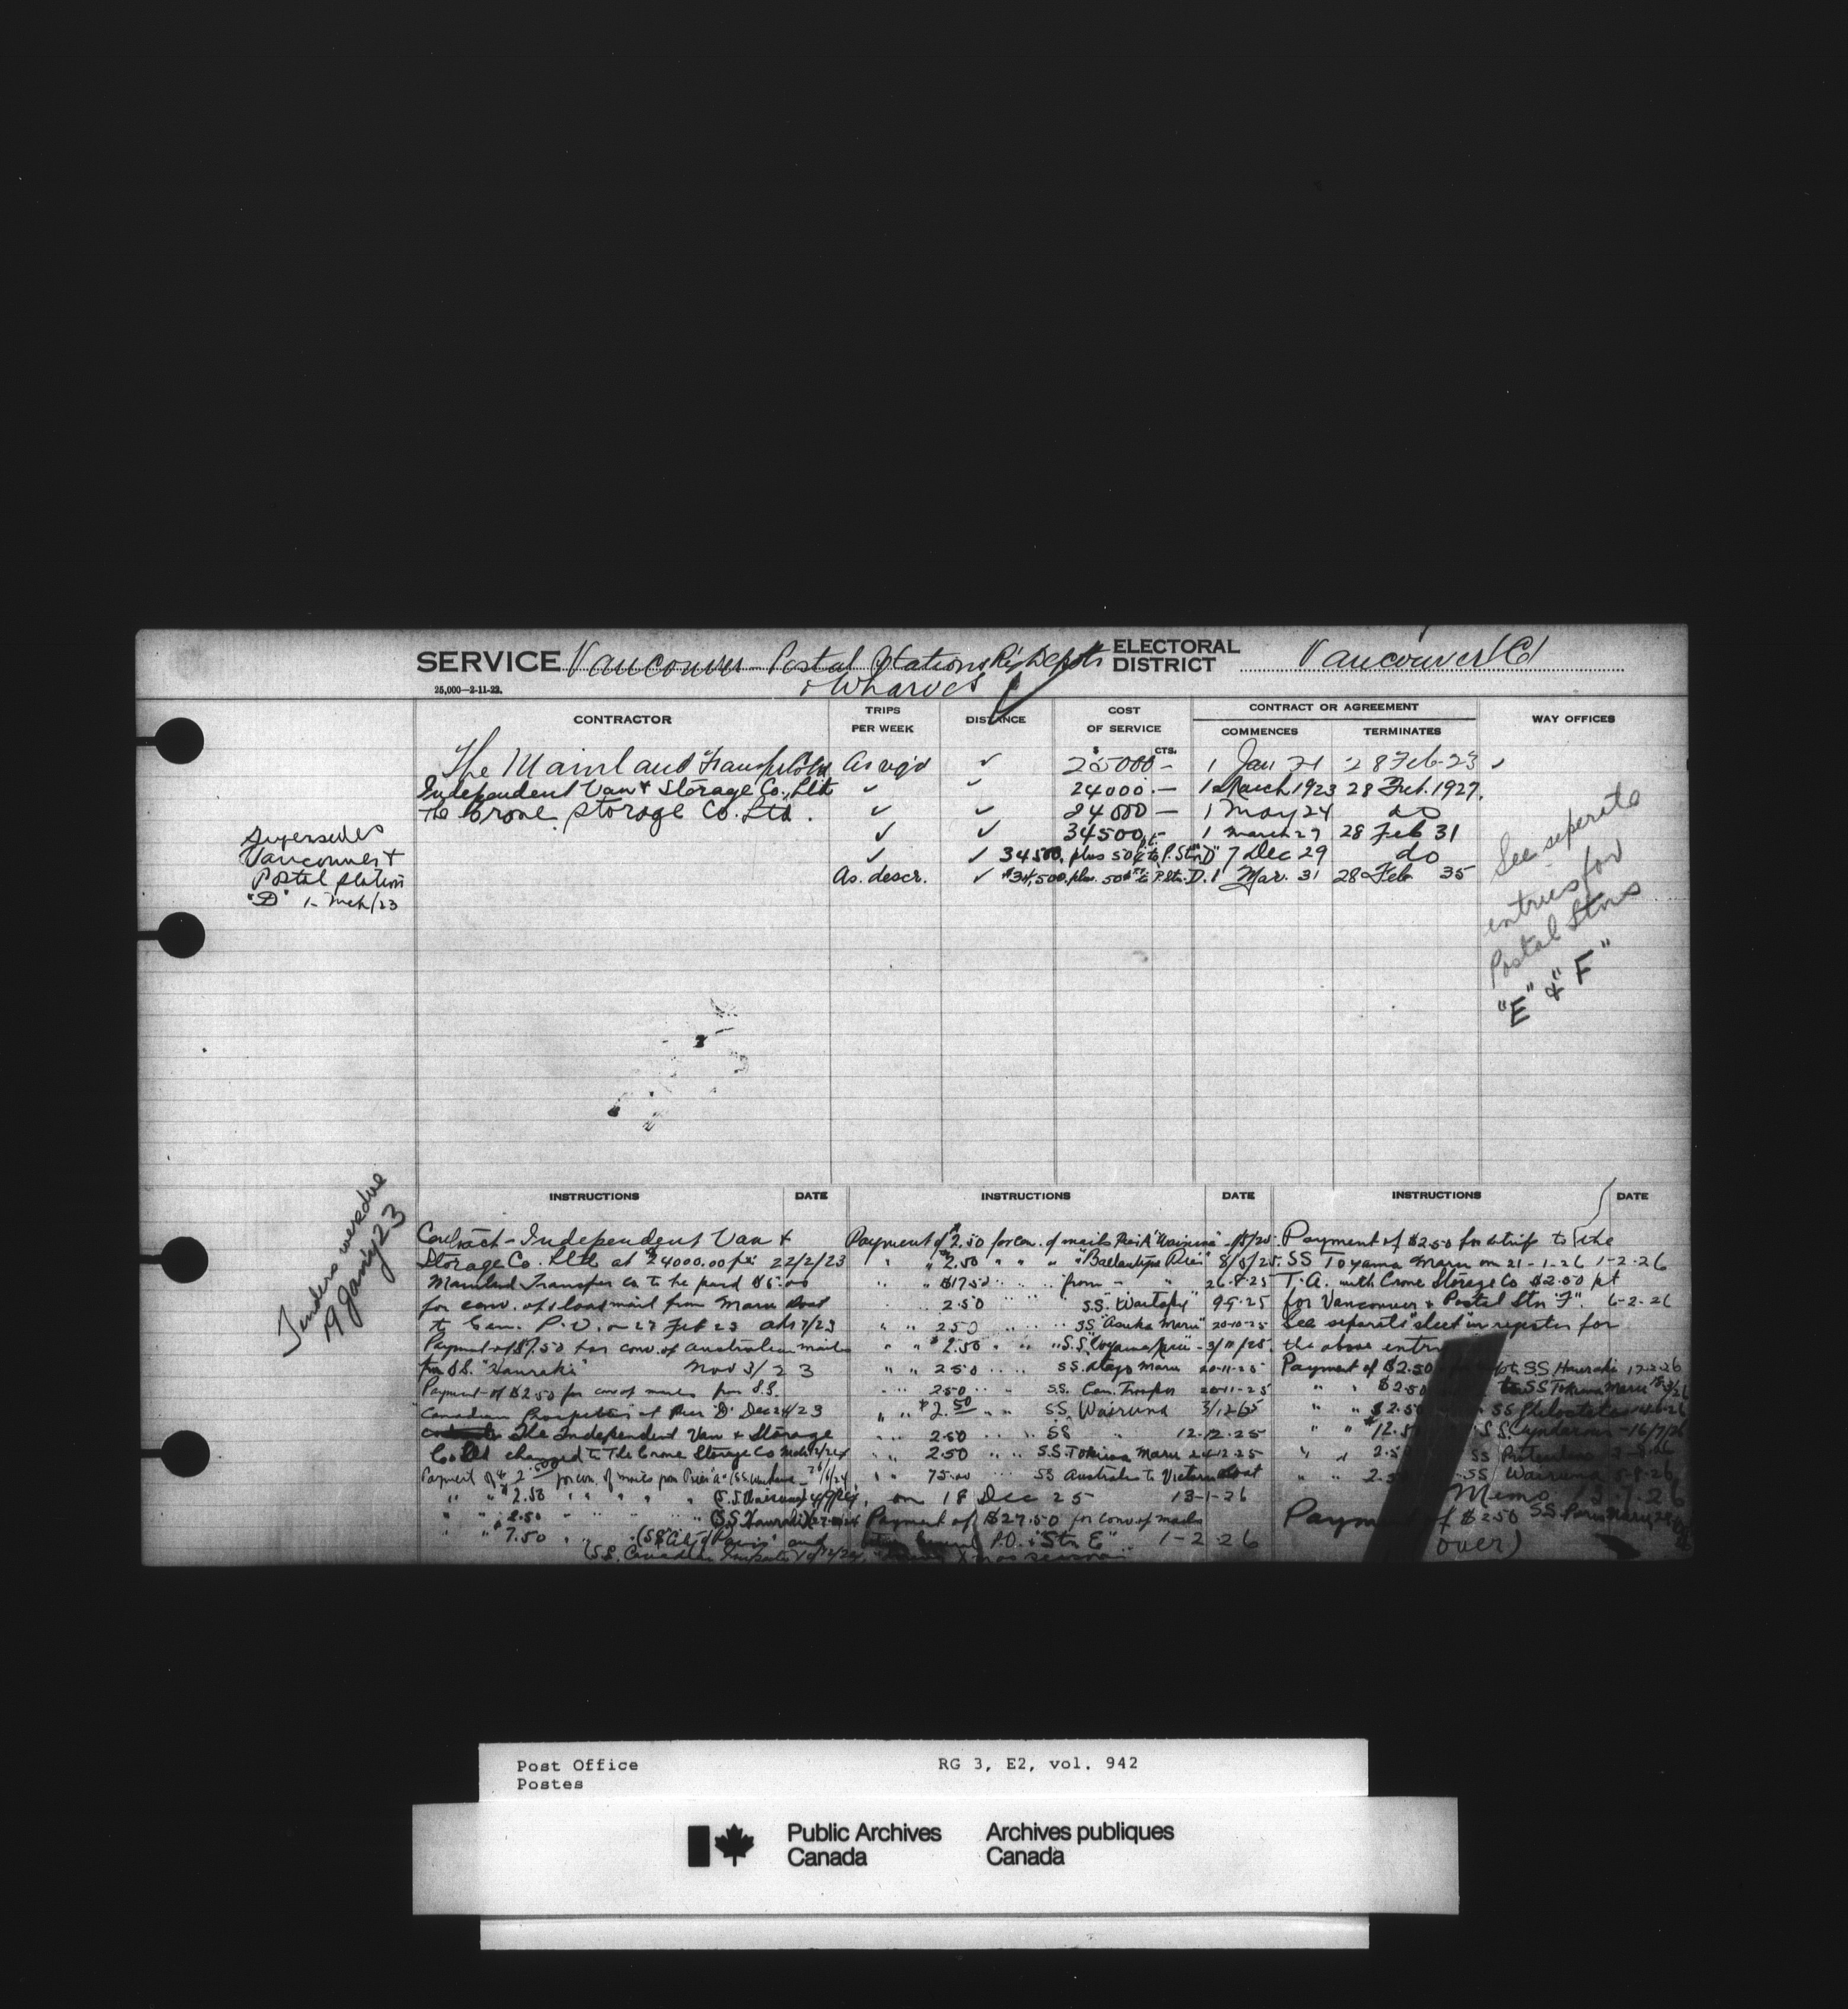 SERVICE Vancouver - Postal Stations Ry Depots ELECTORAL DISTRICT Vancouver (C)
& Wharves
25,000—2-11-22.
CONTRACTOR
TRIPS PER WEEK
DISTANCE
COST OF SERVICE
CONTRACT OR AGREEMENT
COMMENCES
TERMINATES
WAY OFFICES
$ CTS.
The Mainland Transfer Co Ltd As req'd ✓ 25000 - 1 Jan 21 28 Feb-23 ✓
Independent Van & Storage Co., Ltd ✓ ✓ 24000.— 1 March 1923 28 Feb. 1927.
The Crone Storage Co. Ltd. ✓ ✓ 24000 — 1 May 24 do
✓ ✓ 34500.- 1 March 27 28 Feb 31
✓ ✓ 34500. plus 50¢ to P. Stn "D" 7 Dec 29 do
As. descr. ✓ $34,500. plus 50¢ to P. Stn. D. 1 Mar. 31 28 Feb 35
Supersedes
Vancouver &
Postal Station
"D" 1- Mch/23
See seperate
entries for
Postal Stns
"E" & "F"
Tenders were due
19 Jan'y 23
INSTRUCTIONS
DATE
Contract - Independent Van &
Storage Co. Ltd at $24000.00 pa 22/2/23
Mainland Transfer Co to be paid $5.00
for conv. of load mail from Maru boat
to Gen. P.O. on 27 Feb 23
Payment of $7.50 for conv. of Australian mails
from S.S. "Hauraki" Nov 3/23
Payment of $2.50 for conv of mails from S.S.
"Canadian Prospector" at Pier "D" Dec 24/23
The Independent Van & Storage
Co Ltd changed to The Crone Storage Co
Payment of $2.50 for con. of mails from Pier "A"
" " $2.50 " " " " (S.S. Wairuna)
" " 2.50 " " " (S.S. Hauraki)
" " 7.50 " " and
(S.S. Canadian
INSTRUCTIONS
DATE
Payment of $2.50 for con. of mails "Wairuna"
" " 2.50 " " " "Ballantyne Pier" 8/8/25
" " $17.50 " " from - " 26.8.25
" " 2.50 S.S. "Waitapu" 9-9-25
" " 2.50 SS "Asuka Maru" 20-10-25
" " $2.50 " " S.S. "Toyama Maru" - 3/11/25
" " 2.50 SS. Atago Maru 20-11-25
" " 2.50 S.S. Can. Trooper 20-11-25
" " $2.50 " " SS Wairuna
" " 2.50 SS " 12.12.25
" " 2.50 S.S. Tokiwa Maru 24-12-25
" " 75.00 SS Australia to Victoria Boat
on 18 Dec 25 13-1-26
Payment of $27.50 for conv of mails
P.O. & "Stn E" 1-2-26
Xmas season
INSTRUCTIONS
DATE
Payment of $2.50 for 1 trip to the
SS Toyama Maru on 21-1-26 1-2-26
T.A. with Crone Storage Co $2.50 pt
for Vancouver & Postal Stn "F". 6-2-26
See separate sheet in register for
the above
Payment of $2.50 SS. Hauraki
" " $2.50 SS Tokiwa Maru
" " $2.50 SS Philoctetes
" " $12. S.S. - 16/7/26
" " 2.5 SS Protesilaus
" " 2.5 SS Wairuna 5-8-26
Memo
$2.50 S.S. Paris Maru
over)
Post Office RG 3, E2, vol. 942
Postes
Public Archives Archives publiques
Canada Canada